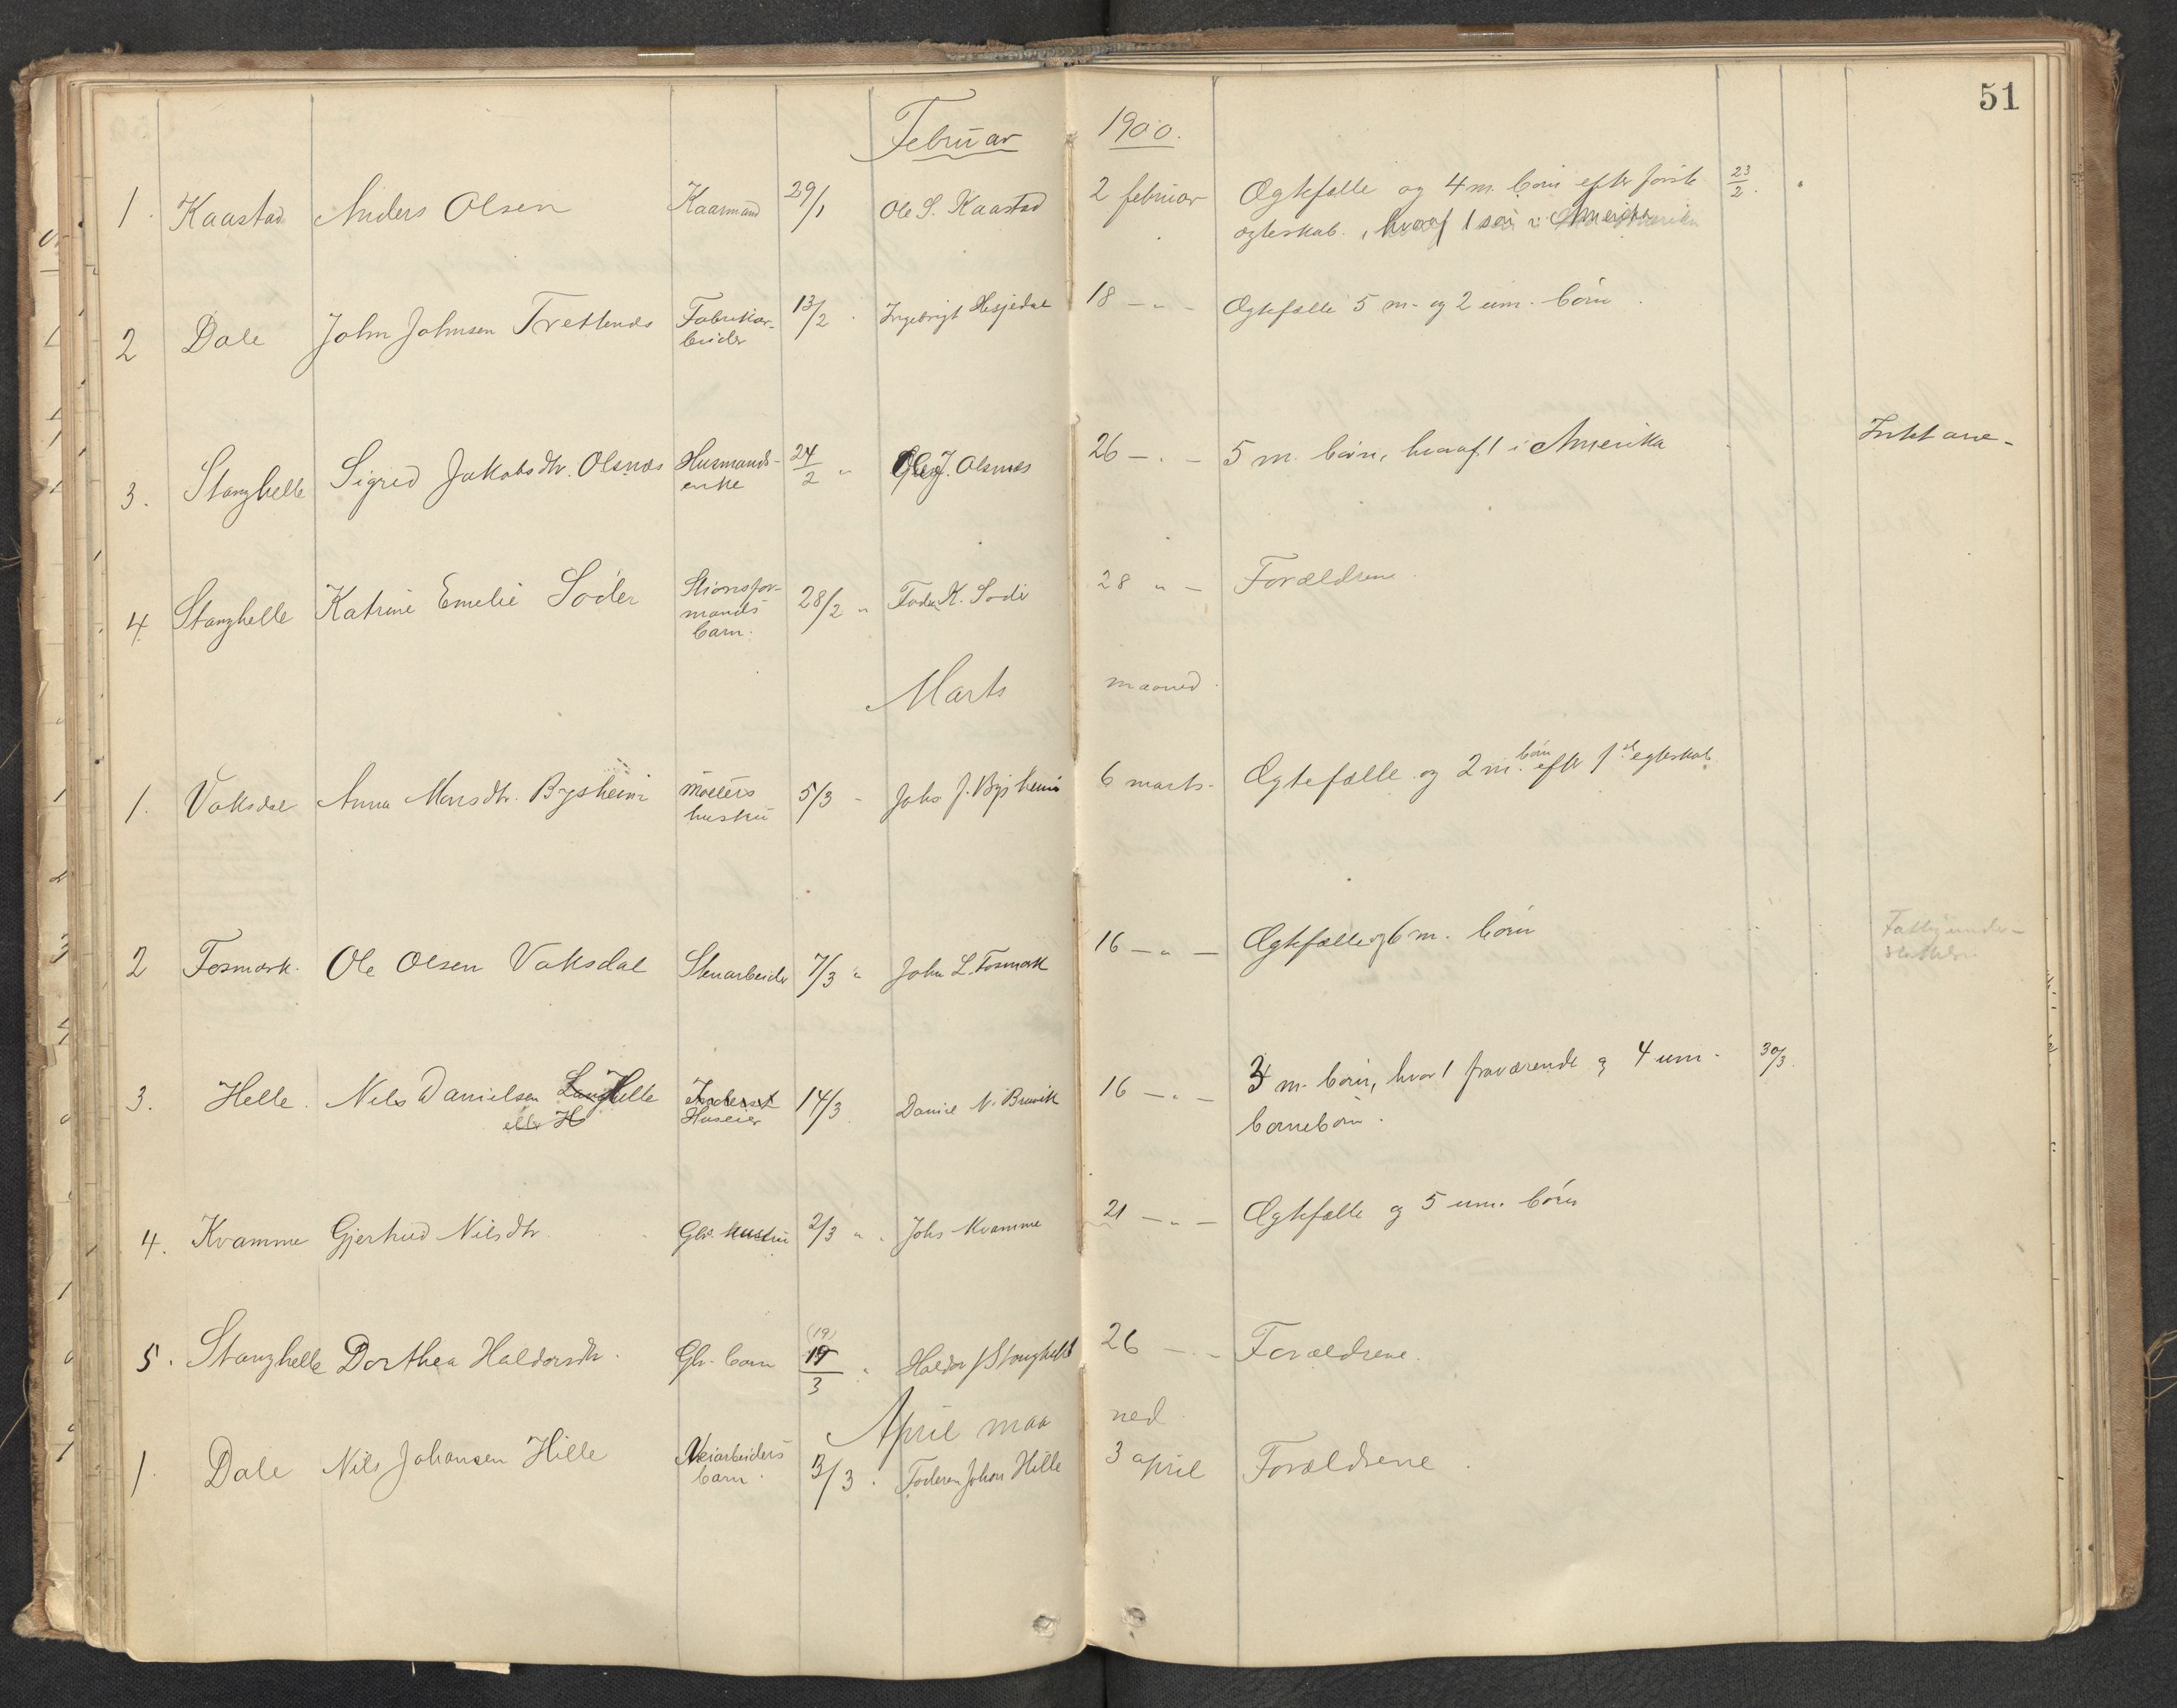 51
Februar 1900.
1. Kaastad Anders Olsen Kaarmand 29/1 Ole S. Kaastad 2 februar Ægtefælle og 4 m. børn efter første 23/2.
ægteskab, hvoraf 1 søn i Amerika
2 Dale John Johnsen Trettenes Fabrikar- 13/2 Ingebrigt Hesjedal 18 - " - Ægtefælle 5 m. og 2 um. børn.
beider
3. Stanghelle Sigrid Jakobsdtr. Olsnæs Husmands- 24/2 " Ole J. Olsnæs 26 - " - 5 m. børn, hvoraf 1 i Amerika Intet arv-
enke
4 Stanghelle Katrine Emelie Söder 28/2 " K. Söder 28 " - Forældrene.
mands
barn.
Marts maaned.
1. Vaksdal Anna Monsdtr. Bysheim møllers 5/3 - Johs J. Bysheim 6 marts - Ægtefælle og 2 m. børn efter 1st egteskab.
hustru
2 Fosmark. Ole Olsen Vaksdal Stenarbeider 7/3 " John L. Fosmark 16 - " - Ægtefælle og 6 m. børn Fattigunder-
støttelse.
3. Helle. Nils Danielsen Helle Inderst 14/3 Daniel N. Bruvik 16 - " - 3 m. børn, hvor 1 fraværende og 4 um. 30/3.
eller H Huseier børnebørn.
4. Kvamme Gjertrud Nilsdtr. Gbr. hustru 2/3 " Johs Kvamme 21 - " - Ægtefælle og 5 um. børn
5. Stanghelle Dorthea Haldorsdtr. Gbr. barn (19) 19/3 " Haldor J Stanghelle 26 - " - Forældrene.
April maaned
1. Dale Nils Johansen Hille Veiarbeiders 13/3. Faderen Johan Hille 3 april Forældrene.
barn.